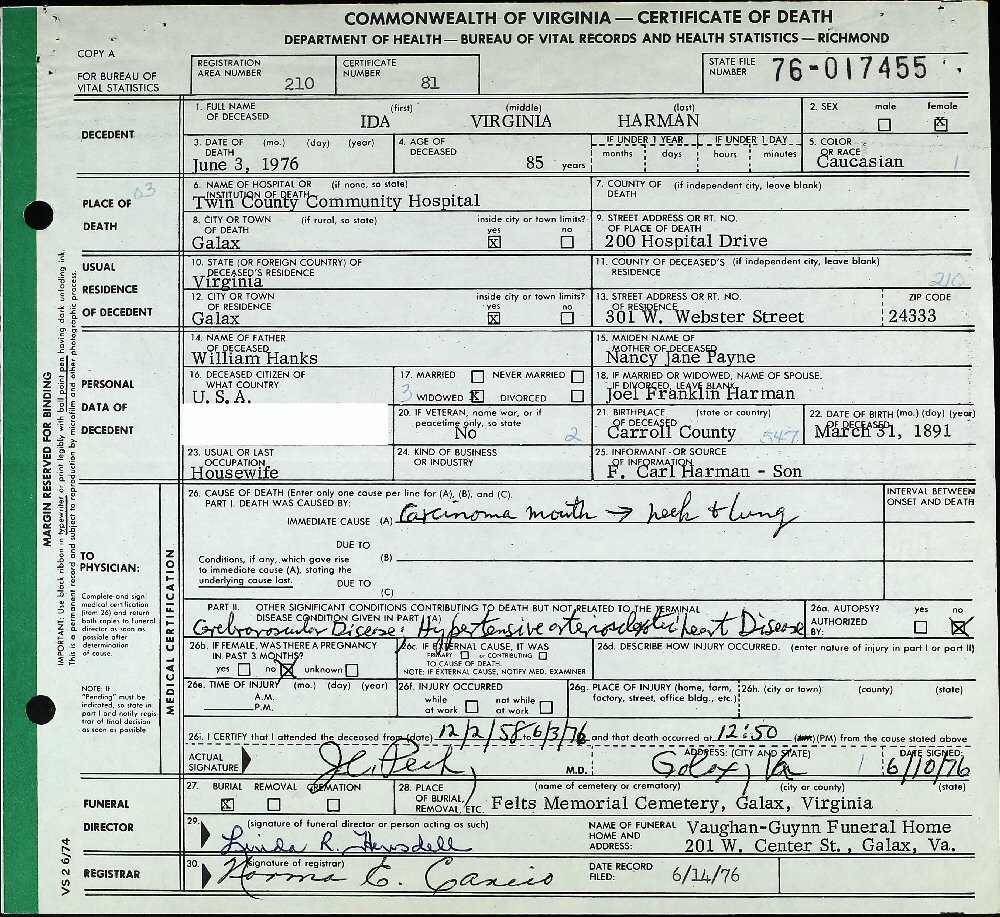 COMMONWEALTH OF VIRGINIA — CERTIFICATE OF DEATH
DEPARTMENT OF HEALTH — BUREAU OF VITAL RECORDS AND HEALTH STATISTICS — RICHMOND
COPY A
FOR BUREAU OF
VITAL STATISTICS
REGISTRATION
AREA NUMBER 210
CERTIFICATE
NUMBER 81
STATE FILE
NUMBER 76-017455
DECEDENT
1. FULL NAME
OF DECEASED
(first) (middle) (last)
IDA VIRGINIA HARMAN
2. SEX male female
☐ ☒
3. DATE OF (mo.) (day) (year)
DEATH
June 3, 1976
4. AGE OF
DECEASED
85 years
IF UNDER 1 YEAR IF UNDER 1 DAY
months days hours minutes
5. COLOR
OR RACE
Caucasian 1
PLACE OF
DEATH
03
6. NAME OF HOSPITAL OR (if none, so state)
INSTITUTION OF DEATH
Twin County Community Hospital
7. COUNTY OF (if independent city, leave blank)
DEATH
8. CITY OR TOWN (if rural, so state)
OF DEATH
Galax
inside city or town limits?
yes no
☒ ☐
9. STREET ADDRESS OR RT. NO.
OF PLACE OF DEATH
200 Hospital Drive
USUAL
RESIDENCE
OF DECEDENT
10. STATE (OR FOREIGN COUNTRY) OF
DECEASED'S RESIDENCE
Virginia
11. COUNTY OF DECEASED'S (if independent city, leave blank)
RESIDENCE
210
12. CITY OR TOWN
OF RESIDENCE
Galax
inside city or town limits?
yes no
☒ ☐
13. STREET ADDRESS OR RT. NO.
OF RESIDENCE
301 W. Webster Street
ZIP CODE
24333
PERSONAL
DATA OF
DECEDENT
14. NAME OF FATHER
OF DECEASED
William Hanks
15. MAIDEN NAME OF
MOTHER OF DECEASED
Nancy Jane Payne
16. DECEASED CITIZEN OF
WHAT COUNTRY
U. S. A.
17. MARRIED ☐ NEVER MARRIED ☐
3 WIDOWED ☒ DIVORCED ☐
18. IF MARRIED OR WIDOWED, NAME OF SPOUSE.
IF DIVORCED, LEAVE BLANK
Joel Franklin Harman
20. IF VETERAN, name war, or if
peacetime only, so state
No 2
21. BIRTHPLACE (state or country)
Carroll County 547
22. DATE OF BIRTH (mo.) (day) (year)
OF DECEASED
March 31, 1891
23. USUAL OR LAST
OCCUPATION
Housewife
24. KIND OF BUSINESS
OR INDUSTRY
25. INFORMANT - OR SOURCE
OF INFORMATION
F. Carl Harman - Son
MARGIN RESERVED FOR BINDING
IMPORTANT: Use black ribbon in typewriter or print legibly with ball point pen having dark unfading ink.
This is a permanent record and subject to reproduction by microfilm and other photographic process.
TO
PHYSICIAN:
Complete and sign
medical certification
(item 26) and return
both copies to funeral
director as soon as
possible after
determination
of cause.
NOTE: IF
"Pending" must be
indicated, so state in
part I and notify regis
trar of final decision
as soon as possible
MEDICAL CERTIFICATION
26. CAUSE OF DEATH (Enter only one cause per line for (A), (B), and (C).
PART I. DEATH WAS CAUSED BY:
IMMEDIATE CAUSE (A) Carcinoma mouth → neck & lung
INTERVAL BETWEEN
ONSET AND DEATH
DUE TO
Conditions, if any, which gave rise
to immediate cause (A), stating the
underlying cause last.
(B)
DUE TO
(C)
PART II. OTHER SIGNIFICANT CONDITIONS CONTRIBUTING TO DEATH BUT NOT RELATED TO THE TERMINAL
DISEASE CONDITION GIVEN IN PART I(A)
Cerebrovascular Disease; Hypertensive arteriosclerotic heart Disease
26a. AUTOPSY? yes no
AUTHORIZED
BY: ☐ ☒
26b. IF FEMALE, WAS THERE A PREGNANCY
IN PAST 3 MONTHS?
yes ☐ no ☒ unknown ☐
26c. IF EXTERNAL CAUSE, IT WAS
PRIMARY ☐ or CONTRIBUTING ☐
TO CAUSE OF DEATH.
NOTE: IF EXTERNAL CAUSE, NOTIFY MED. EXAMINER
26d. DESCRIBE HOW INJURY OCCURRED. (enter nature of injury in part I or part II)
26e. TIME OF INJURY (mo.) (day) (year)
A.M.
P.M.
26f. INJURY OCCURRED
while not while
at work ☐ at work ☐
26g. PLACE OF INJURY (home, farm,
factory, street, office bldg., etc.)
26h. (city or town) (county) (state)
26i. I CERTIFY that I attended the deceased from (date) 12/2/58 to 6/3/76 and that death occurred at 12:50 (PM) from the cause stated above
ACTUAL
SIGNATURE
J.C. Peck, M.D.
ADDRESS: (CITY AND STATE)
Galax, Va 1
DATE SIGNED:
6/10/76
FUNERAL
DIRECTOR
27. BURIAL REMOVAL CREMATION
☒ ☐ ☐
28. PLACE
OF BURIAL,
REMOVAL, ETC.
(name of cemetery or crematory) (city or county) (state)
Felts Memorial Cemetery, Galax, Virginia
29. (signature of funeral director or person acting as such)
Linda R.
NAME OF FUNERAL
HOME AND
ADDRESS:
Vaughan-Guynn Funeral Home
201 W. Center St., Galax, Va.
REGISTRAR
30. (signature of registrar)
Norma E.
DATE RECORD
FILED:
6/14/76
VS 2 6/74